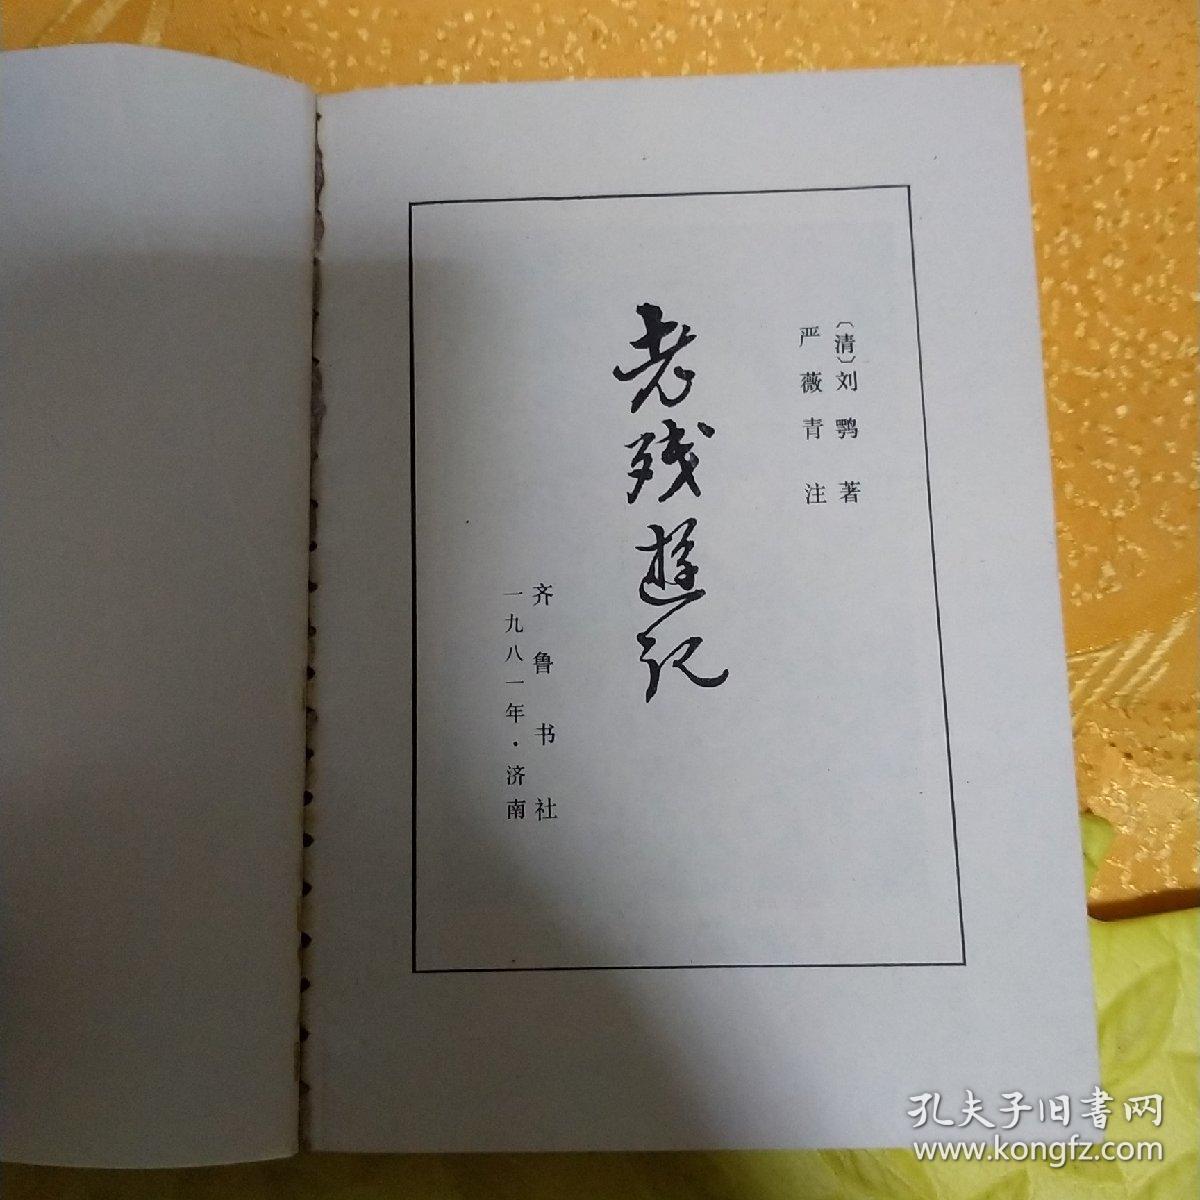 〔清〕刘鹗 著
严薇青 注
老残遊记
齐鲁书社
一九八一年·济南
孔夫子旧書网
www.kongfz.com